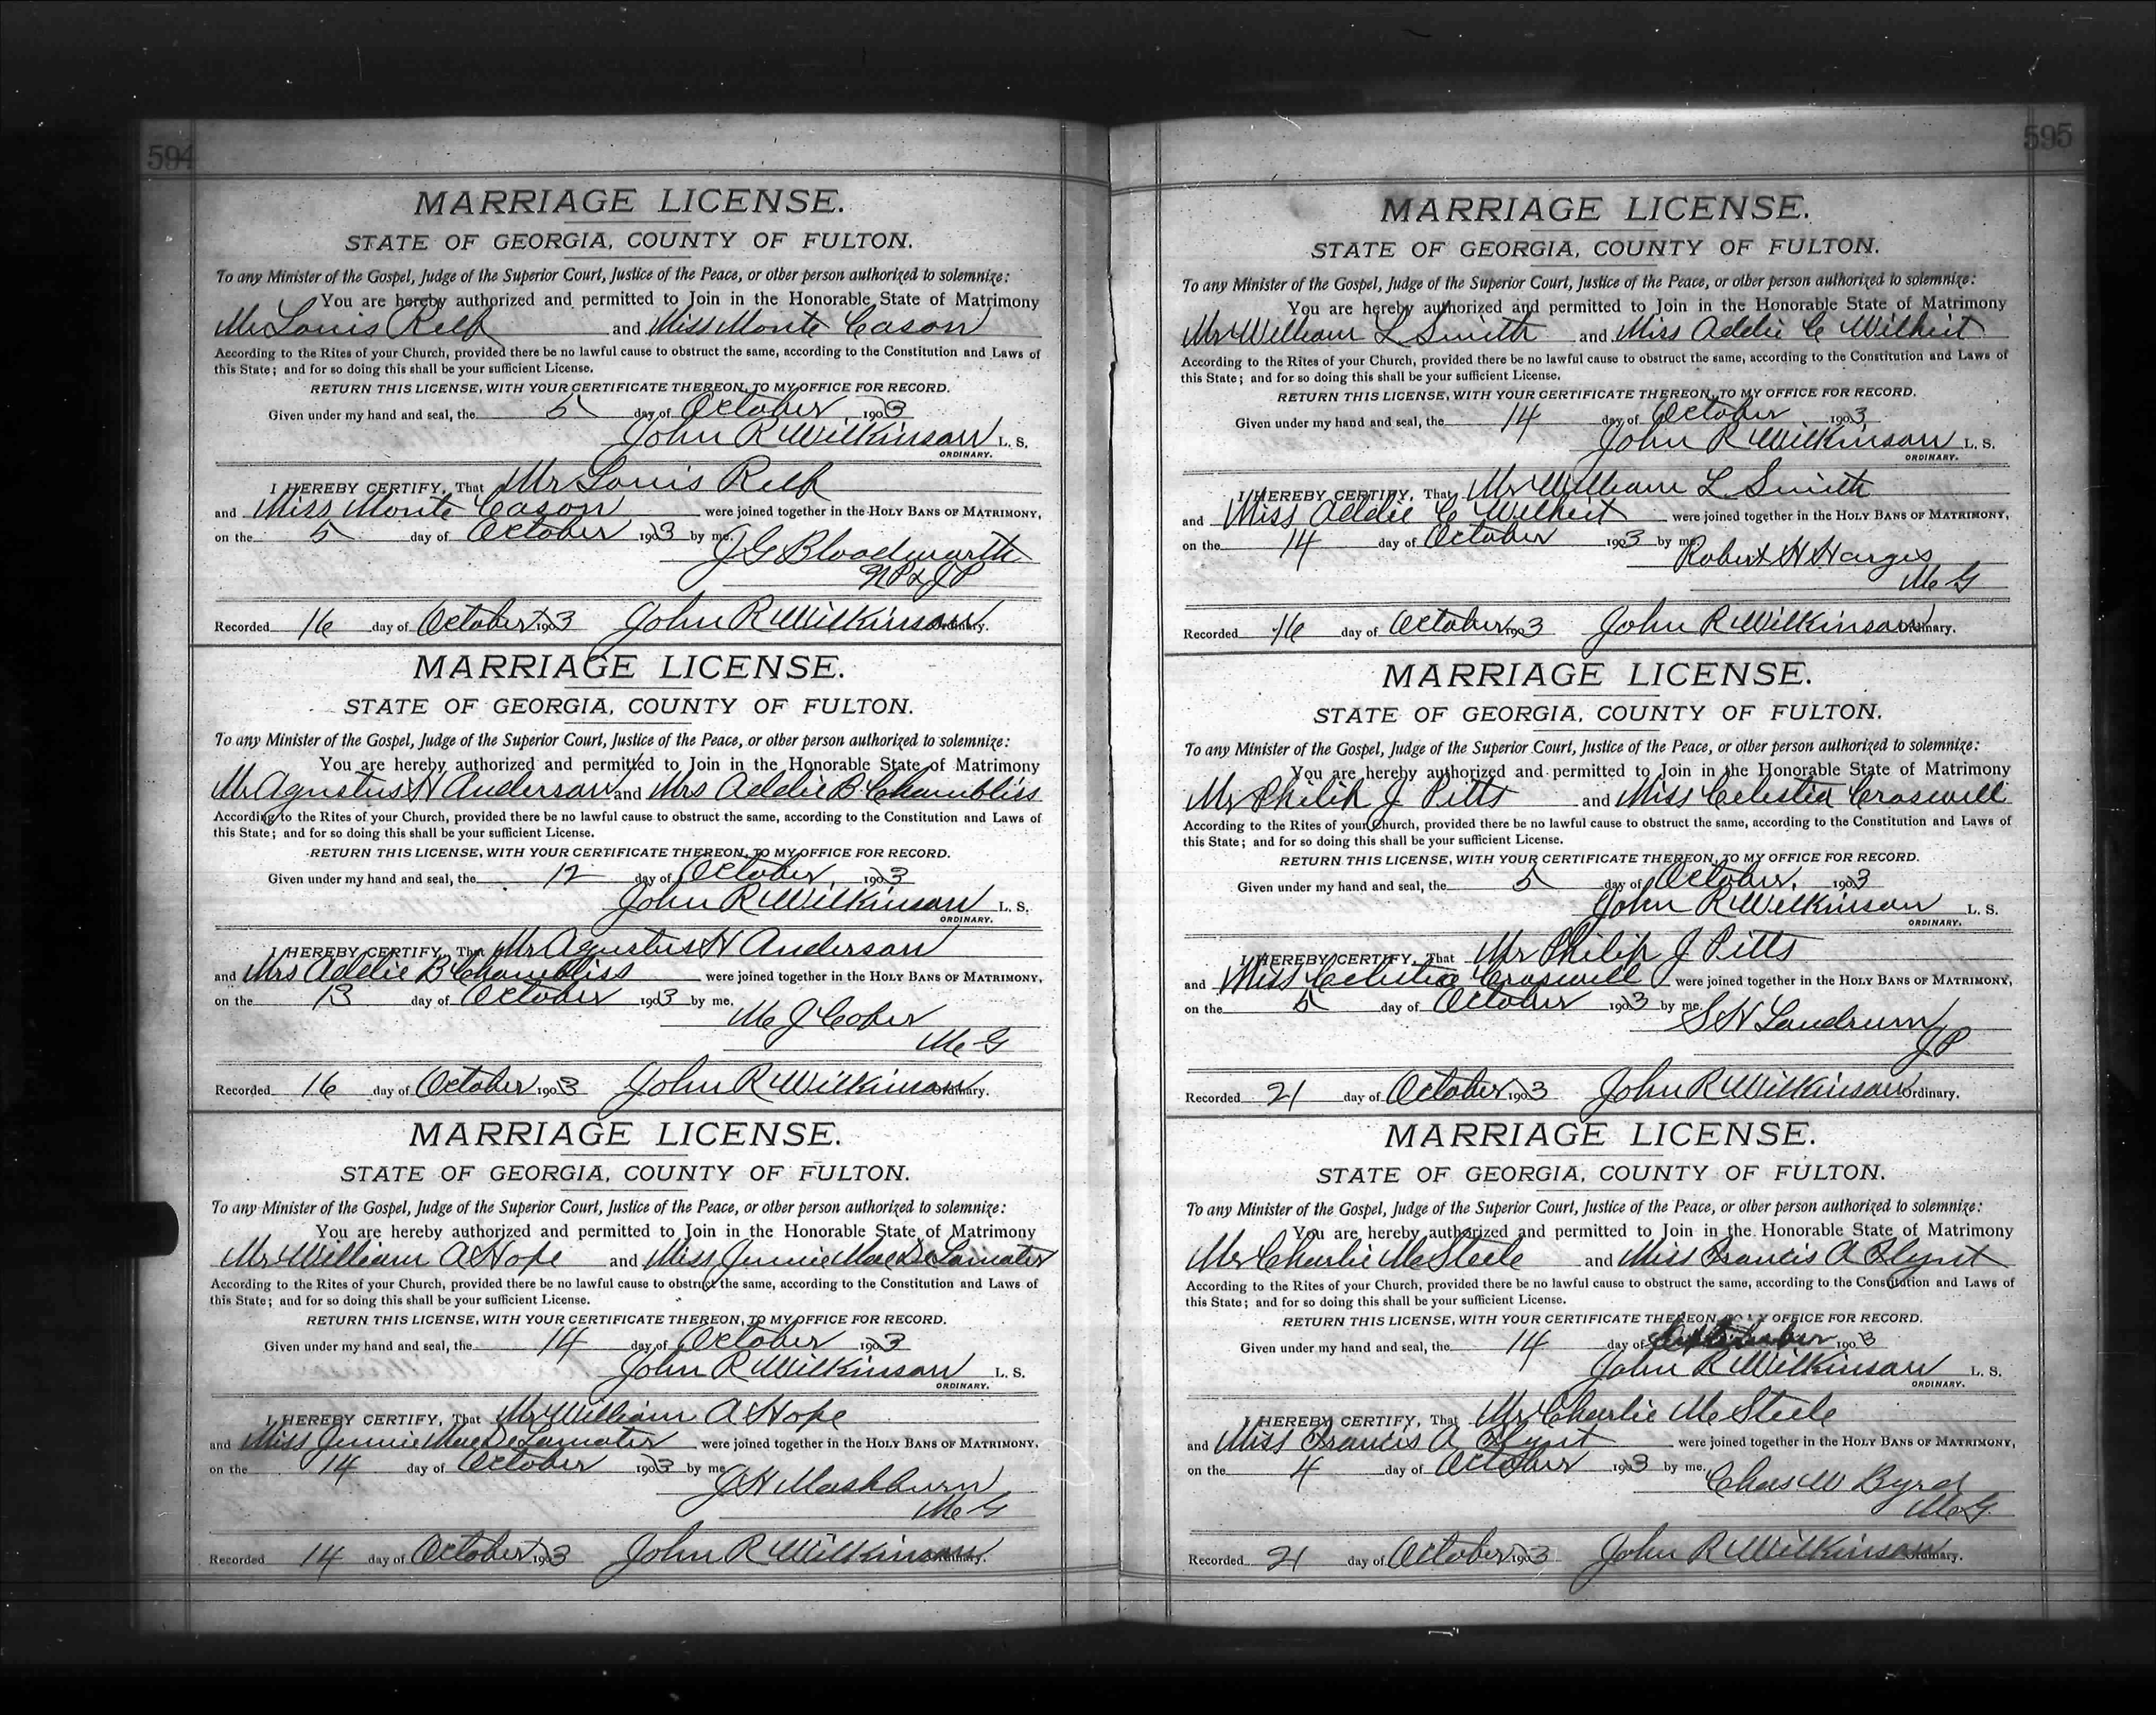 594
MARRIAGE LICENSE.
STATE OF GEORGIA, COUNTY OF FULTON.
To any Minister of the Gospel, Judge of the Superior Court, Justice of the Peace, or other person authorized to solemnize:
You are hereby authorized and permitted to Join in the Honorable State of Matrimony
Mr Louis Relf and Miss Monte Cason
According to the Rites of your Church, provided there be no lawful cause to obstruct the same, according to the Constitution and Laws of
this State; and for so doing this shall be your sufficient License.
RETURN THIS LICENSE, WITH YOUR CERTIFICATE THEREON, TO MY OFFICE FOR RECORD.
Given under my hand and seal, the 5 day of October 1903
John R Wilkinson L. S.
ORDINARY.
I HEREBY CERTIFY, That Mr Louis Relf
and Miss Monte Cason were joined together in the HOLY BANS OF MATRIMONY,
on the 5 day of October 1903 by me.
J G Bloodworth
N P & J P
Recorded 16 day of October 1903 John R Wilkinson Ordinary.
MARRIAGE LICENSE.
STATE OF GEORGIA, COUNTY OF FULTON.
To any Minister of the Gospel, Judge of the Superior Court, Justice of the Peace, or other person authorized to solemnize:
You are hereby authorized and permitted to Join in the Honorable State of Matrimony
Mr Agustus H Anderson and Mrs Addie B Chambliss
According to the Rites of your Church, provided there be no lawful cause to obstruct the same, according to the Constitution and Laws of
this State; and for so doing this shall be your sufficient License.
RETURN THIS LICENSE, WITH YOUR CERTIFICATE THEREON, TO MY OFFICE FOR RECORD.
Given under my hand and seal, the 12 day of October 1903
John R Wilkinson L. S.
ORDINARY.
I HEREBY CERTIFY, That Mr Agustus H Anderson
and Mrs Addie B Chambliss were joined together in the HOLY BANS OF MATRIMONY,
on the 13 day of October 1903 by me.
M J Cofer
M G
Recorded 16 day of October 1903 John R Wilkinson Ordinary.
MARRIAGE LICENSE.
STATE OF GEORGIA, COUNTY OF FULTON.
To any Minister of the Gospel, Judge of the Superior Court, Justice of the Peace, or other person authorized to solemnize:
You are hereby authorized and permitted to Join in the Honorable State of Matrimony
Mr William A Hope and Miss Jennie Mae DeLamater
According to the Rites of your Church, provided there be no lawful cause to obstruct the same, according to the Constitution and Laws of
this State; and for so doing this shall be your sufficient License.
RETURN THIS LICENSE, WITH YOUR CERTIFICATE THEREON, TO MY OFFICE FOR RECORD.
Given under my hand and seal, the 14 day of October 1903
John R Wilkinson L. S.
ORDINARY.
I HEREBY CERTIFY, That Mr William A Hope
and Miss Jennie Mae DeLamater were joined together in the HOLY BANS OF MATRIMONY,
on the 14 day of October 1903 by me
J H Mashburn
M G
Recorded 14 day of October 1903 John R Wilkinson Ordinary.
595
MARRIAGE LICENSE.
STATE OF GEORGIA, COUNTY OF FULTON.
To any Minister of the Gospel, Judge of the Superior Court, Justice of the Peace, or other person authorized to solemnize:
You are hereby authorized and permitted to Join in the Honorable State of Matrimony
Mr William L Smith and Miss Addie C Wilheit
According to the Rites of your Church, provided there be no lawful cause to obstruct the same, according to the Constitution and Laws of
this State; and for so doing this shall be your sufficient License.
RETURN THIS LICENSE, WITH YOUR CERTIFICATE THEREON, TO MY OFFICE FOR RECORD.
Given under my hand and seal, the 14 day of October 1903
John R Wilkinson L. S.
ORDINARY.
I HEREBY CERTIFY, That Mr William L Smith
and Miss Addie C Wilheit were joined together in the HOLY BANS OF MATRIMONY,
on the 14 day of October 1903 by me.
Robert H Harges
M G
Recorded 16 day of October 1903 John R Wilkinson Ordinary.
MARRIAGE LICENSE.
STATE OF GEORGIA, COUNTY OF FULTON.
To any Minister of the Gospel, Judge of the Superior Court, Justice of the Peace, or other person authorized to solemnize:
You are hereby authorized and permitted to Join in the Honorable State of Matrimony
Mr Philip J Pitts and Miss Celestia Croswell
According to the Rites of your Church, provided there be no lawful cause to obstruct the same, according to the Constitution and Laws of
this State; and for so doing this shall be your sufficient License.
RETURN THIS LICENSE, WITH YOUR CERTIFICATE THEREON, TO MY OFFICE FOR RECORD.
Given under my hand and seal, the 5 day of October, 1903
John R Wilkinson L. S.
ORDINARY.
I HEREBY CERTIFY, That Mr Philip J Pitts
and Miss Celestia Croswell were joined together in the HOLY BANS OF MATRIMONY,
on the 5 day of October 1903 by me
S H Landrum
J P
Recorded 21 day of October 1903 John R Wilkinson Ordinary.
MARRIAGE LICENSE.
STATE OF GEORGIA, COUNTY OF FULTON.
To any Minister of the Gospel, Judge of the Superior Court, Justice of the Peace, or other person authorized to solemnize:
You are hereby authorized and permitted to Join in the Honorable State of Matrimony
Mr Charlie M Steele and Miss Francis A Flynt
According to the Rites of your Church, provided there be no lawful cause to obstruct the same, according to the Constitution and Laws of
this State; and for so doing this shall be your sufficient License.
RETURN THIS LICENSE, WITH YOUR CERTIFICATE THEREON, TO MY OFFICE FOR RECORD.
Given under my hand and seal, the 14 day of 1903
John R Wilkinson L. S.
ORDINARY.
I HEREBY CERTIFY, That Mr Charlie M Steele
and Miss Francis A Flynt were joined together in the HOLY BANS OF MATRIMONY,
on the 4 day of October 1903 by me.
Chas W Byrd
M G.
Recorded 21 day of October 1903 John R Wilkinson Ordinary.